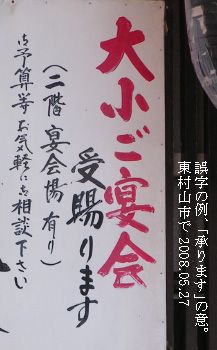 大小ご宴会
受賜ります
(二階宴会場有り)
御予算等お気軽にお相談下さい
誤字の例、「承ります」の意。
東村山市で 2008.05.27